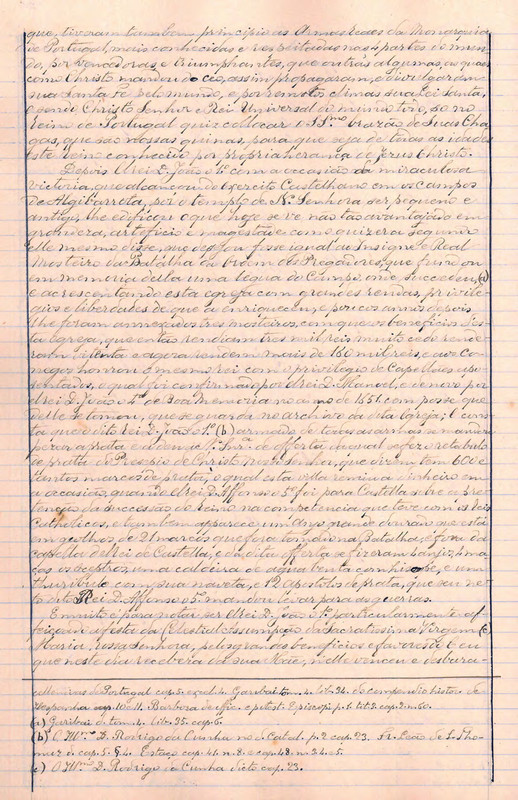 que, tiveram tambem principio as Armas Reaes da Monarquia
de Portugal, mais conhecidas e respeitadas nas 4 partes do mun-
do, por vencedoras, e triumphantes, que outras algumas, as quaes
como Christo mandou do ceo, assim propagaram, e divulgaram
sua Santa Fé pelo mundo, e por remotos climas sua Lei Santa,
e sendo Christo Senhor e Rei Universal do mundo todo, só no
Reino de Portugal quiz collocar o SS.mo brazão de Suas Cha-
gas, que são nossas quinas, para que seja de todas as idades
este Reino conhecido por propria herança de Jesus Christo.
Depois El rei D. João o 1º com a occasião da miraculosa
victoria, que alcançou do exercito Castelhano em os campos
de Algibarrota, por o templo de N.ª Senhora ser pequeno e
antigo, lhe edificou o que hoje se vê não tão avantajado em
grandeza, artificio e magestade como quizera segundo
elle mesmo disse, que desejou fosse igual ao Insigne e Real
Mosteiro da Batalha da Ordem dos Pregadores, que fundou
em memoria della uma legua do Campo, onde succedeu, (a)
e accrescentando esta egreja com grandes rendas, privile-
gios e liberdades de que a enriqueceu, e poucos annos depois
lhe foram annexados tres mosteiros, com que os beneficios des-
ta Igreja, que então rendiam tres mil reis muito cedo rende-
ram oitenta e agora rendem mais de 180 mil reis, e aos co-
negos honrou o mesmo rei com o privilegio de Capellães apo-
sentados, o qual foi confirmado por el rei D. Manoel, e de novo por
el rei D. João o 4º de boa memoria no anno de 1651 com posse que
delle se tomou, que se guarda no archivo da dita Igreja; E cons-
ta que o dito Rei D. João o 1º (b) armado de todas as armas se mandou
pezar a prata e a deu a N. Snr.ª de offerta da qual se fez o retabulo
de prata do Presepio de Christo nosso Senhor, que dizem tem 600 e
tantos marcos de prata, o qual esta villa remiu a dinheiro em
a occasião, quando El rei D. Affonso o 5º foi para Castella sobre a pre-
tenção da successão do Reino na competencia que teve com os Reis
Catholicos, e tambem apparece um Anjo grande dourado que está
em geolhos, de 21 marcos que fora tomado na Batalha, e fora da
capella del rei de Castella, e da dita offerta se fizeram 4 anjos, 4 ma-
ças, os ceptros, uma caldeira de agua benta com hisope, e um
thuribulo com sua naveta, e 12 Apostolos de prata, que seu ne-
to o dito Rei D. Affonso o 5º mandou levar para as guerras.
E muito é para notar ser El rei D. João o 1º particularmente af-
feiçoado á festa da Celestial Assumpção da Sacratissima Virgem (c)
Maria nossa Senhora, pelos grandes beneficios e favores de Deus
que neste dia recebera da sua Mãe, nelle venceu e desbara-
Garibai tom. 4. lib. 34. do compendio histor. de
Hespanha cap. 10 e 11. Barbosa de offic. e potest. Episcopi p. 1. tit. 3. cap. 2. n. 60.
(a) Garibai de tom. 4. lib. 35. cap. 6.
(b) O Ill.mo D. Rodrigo da Cunha no de Catal. p. 2 cap. 23. Fr. Leão de S. Tho-
cap. 5. § 4. Estaço cap. 41. n. 8. e cap. 48. n. 3. 4. e 5.
(c) O Ill.mo D. Rodrigo da Cunha dicto cap. 23.